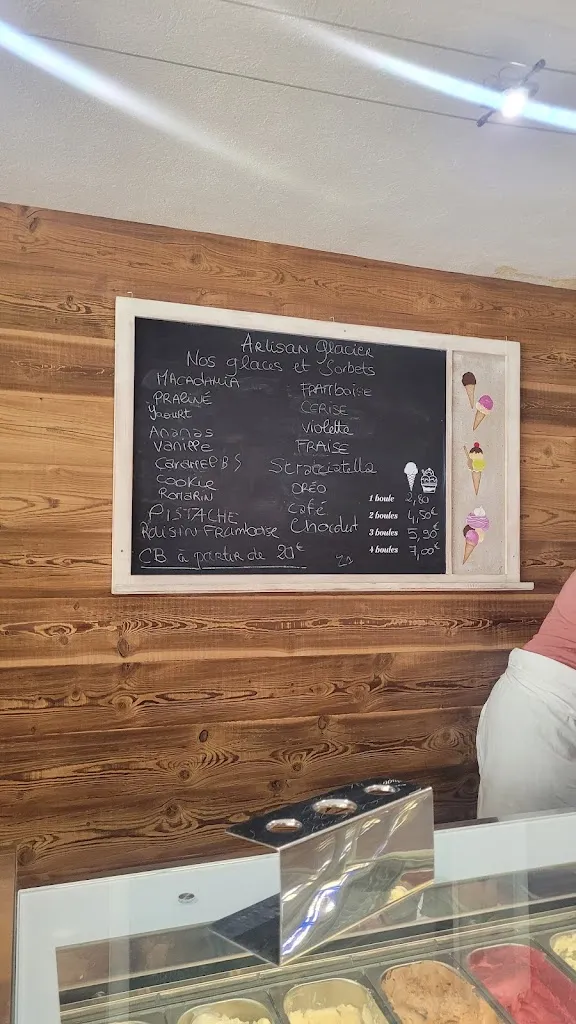 Artisan Glacier
Nos glaces et Sorbets
MACADAMIA
PRALINÉ
Yaourt
Ananas
Vanille
Caramel B S
Cookie
Romarin
PISTACHE
Raisin Framboise
FRAMBOISE
CERISE
Violette
FRAISE
Stracciatella
ORÉO
Café
Chocolat
1 boule 2,80
2 boules 4,50€
3 boules 5,90€
4 boules 7,00€
CB à partir de 20€